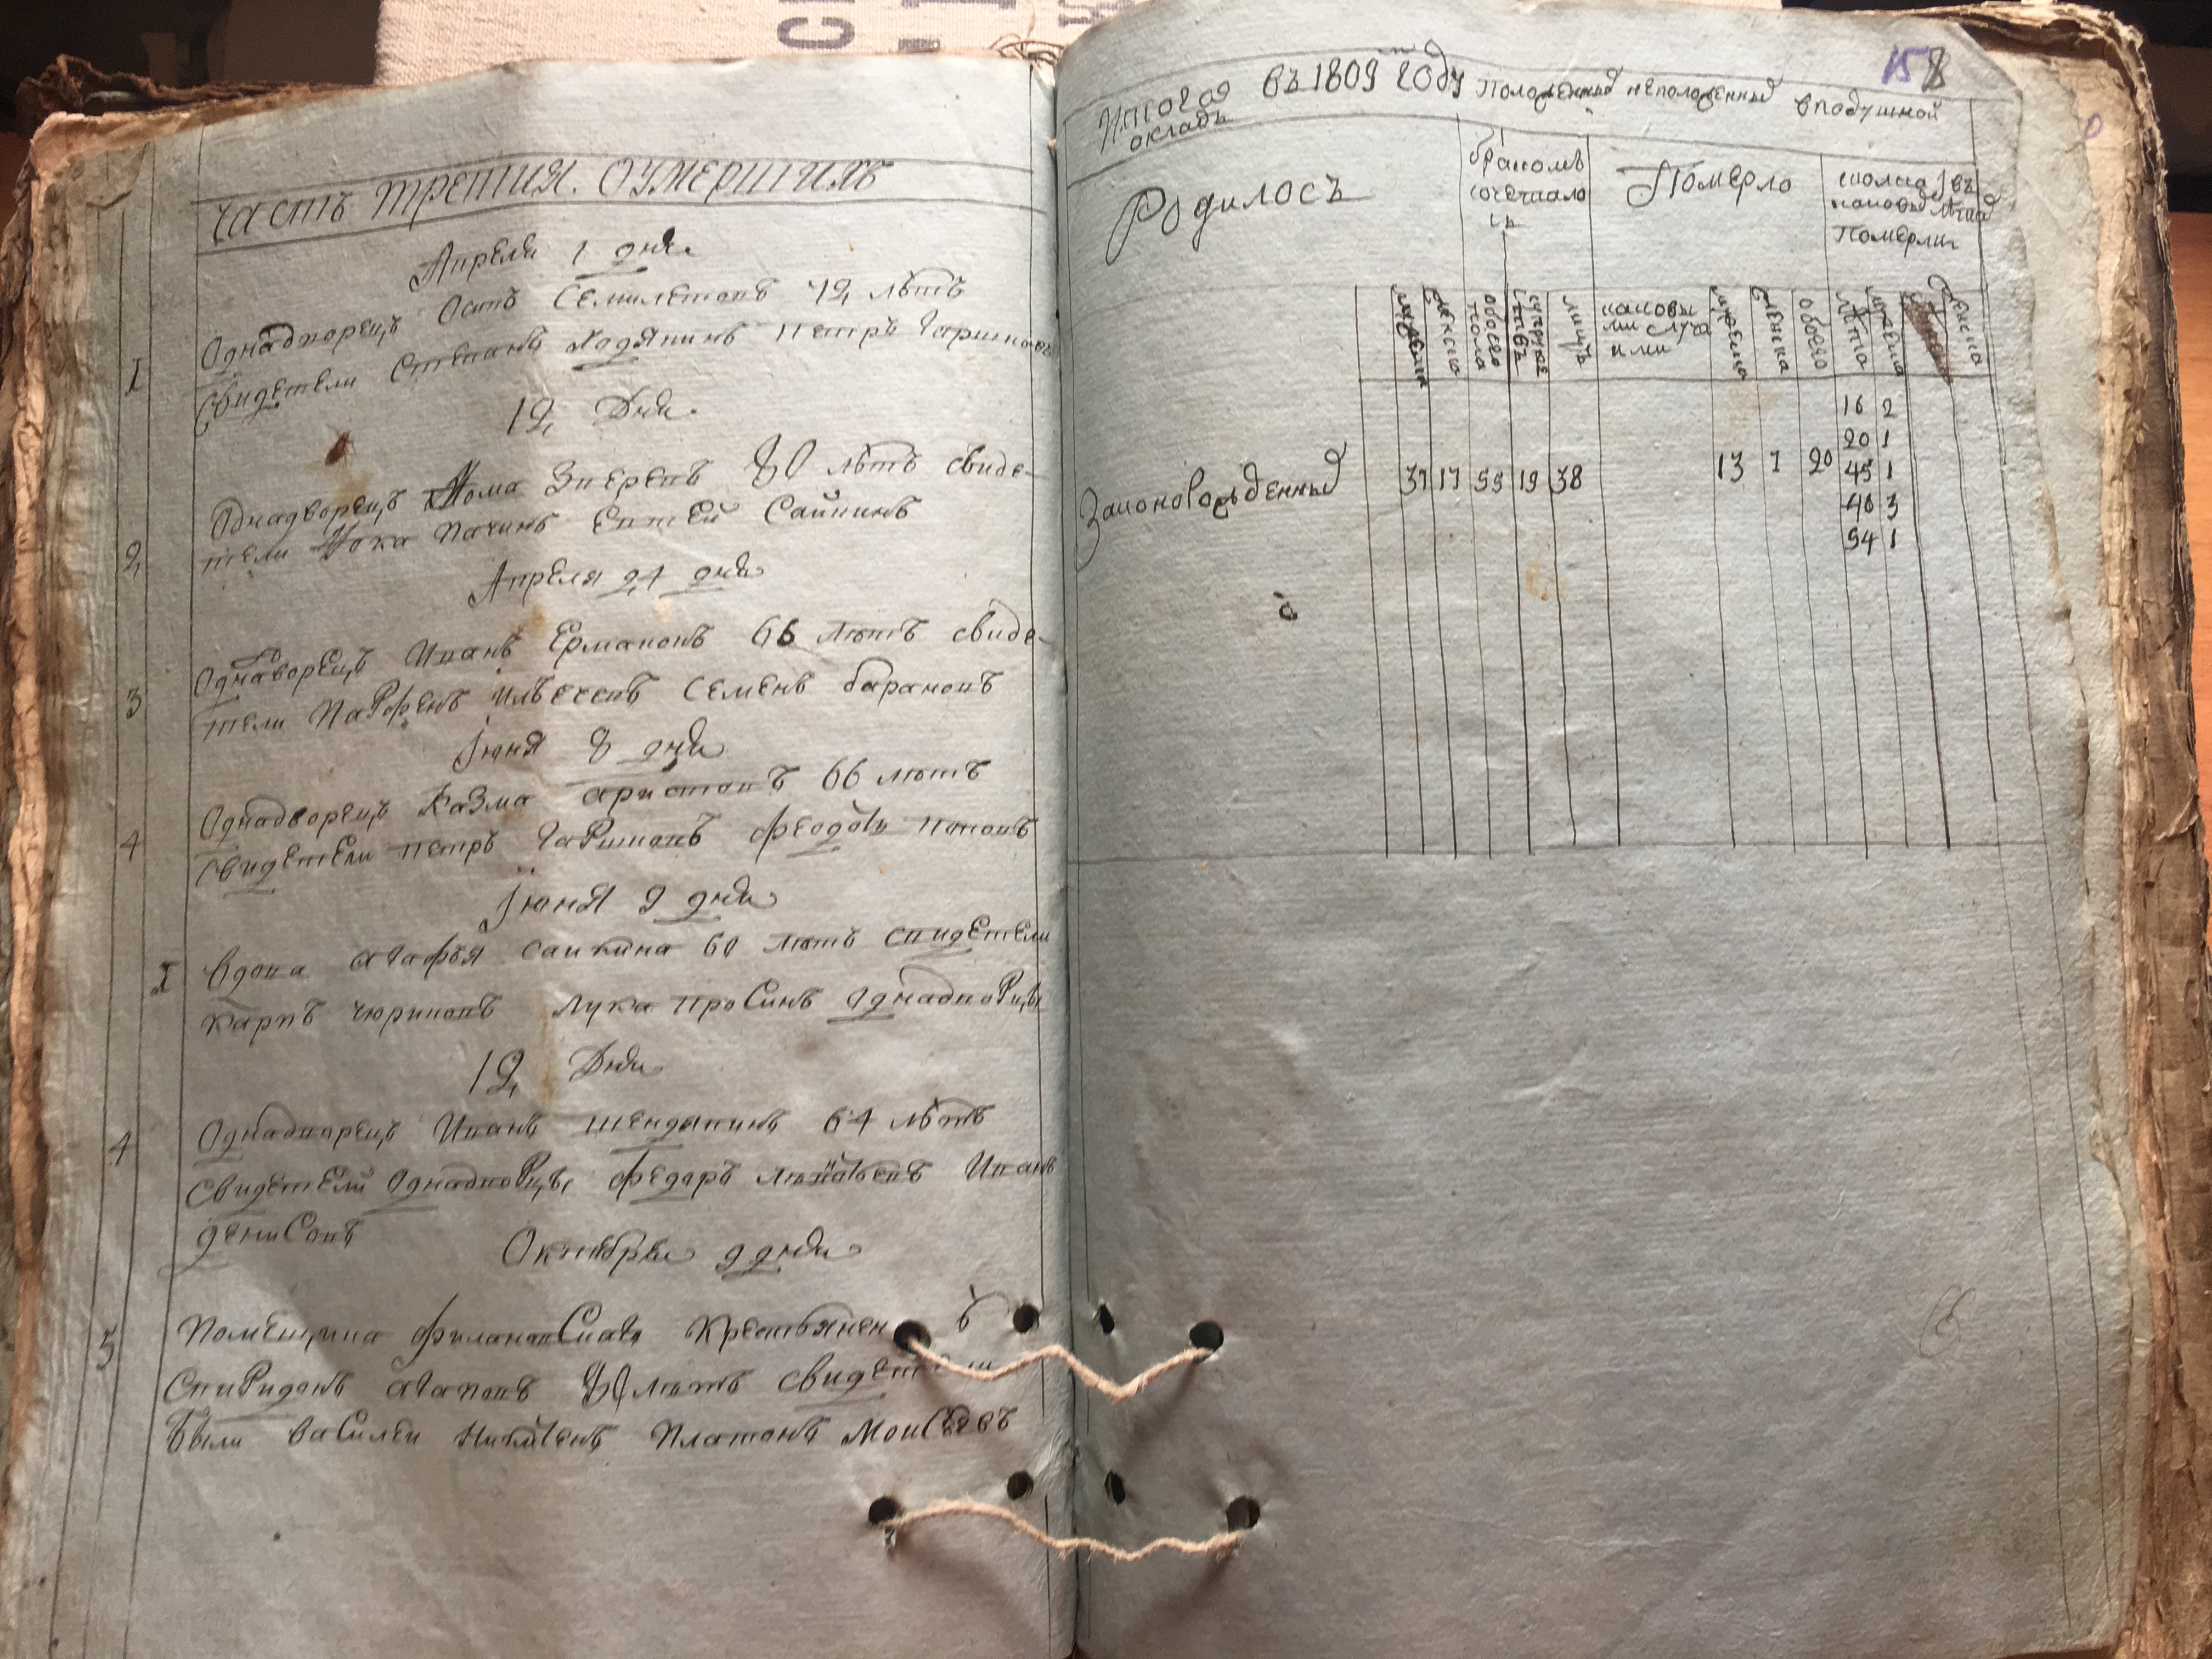 часть третия. оумершихъ
Апреля 1 дня
I Однадворецъ Семилетовъ 42 лѣтъ
Свидетели Степанъ Петръ Гаршковъ
12 Дня
2 Однадворецъ Фома Зверевъ 80 летъ свиде-
тели Фока Пачинъ Евтей Саикинъ
Апреля 24 дня
3 Однаворецъ Иванъ Ермаковъ 66 лютъ свиде-
тели Парфенъ Семенъ барановъ
Июня 8 дня
4 Однадворецъ Казма аристовъ 66 лютъ
Свидетели петръ Гаршковъ феодоръ поповъ
Июня 9 дня
I Вдова агафья саикина 60 лютъ свидетели
карпъ чюриковъ лука просинъ однадворцы
12 Дня
4 Однадворецъ Иванъ 64 лѣтъ
Свидетели однадворцы федоръ Иванъ
денисовъ
Октября 9 дня
5 Помещика Крестьянен ъ
Спиридонъ агаповъ 80 лютъ свидетели
Были василеи Платонъ Моисеевъ
158
Итого въ 1809 году положенныхъ неположенныхъ в подушной
окладъ
Родилосъ
бракомъ
сочетало
съ
Померло
Померли
мужеска женска обоего пола супружествъ лицъ какови ми случа ями мужеска женска обоего Лѣта мужеска женска
Законорожденныхъ 37 17 55 19 38 13 7 20
16 2
20 1
45 1
46 3
54 1